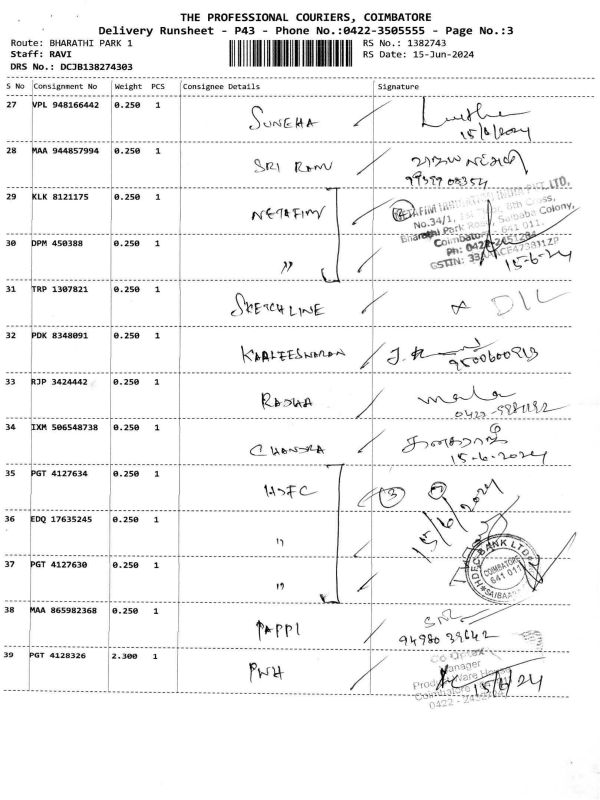 THE PROFESSIONAL COURIERS, COIMBATORE
Delivery Runsheet - P43 - Phone No.:0422-3505555 - Page No.:3
Route: BHARATHI PARK 1
RS No.: 1382743
Staff: RAVI
RS Date: 15-Jun-2024
DRS No.: DCJB138274303
S No Consignment No Weight PCS Consignee Details Signature
27 VPL 948166442 0.250 1 SUNEHA
15/6/2024
28 MAA 944857994 0.250 1 SRI RAM
29 KLK 8121175 0.250 1 NETAFIM
No.34/1, 8th Cross,
Bharathi Park Road, Saibaba Colony,
Coimbatore - 641 011.
30 DPM 450388 0.250 1 "
15-6-24
31 TRP 1307821 0.250 1 SKETCHLINE DIL
32 PDK 8348091 0.250 1 KAALEESWARAN
9500600913
33 RJP 3424442 0.250 1 RADHA mala
34 IXM 506548738 0.250 1 CHANDRA
15-6-2024
35 PGT 4127634 0.250 1 HDFC 3
15/6/2024
36 EDQ 17635245 0.250 1 "
HDFC BANK LTD
COIMBATORE
641 011
37 PGT 4127630 0.250 1 "
38 MAA 865982368 0.250 1 PAPPI
94980 39642
39 PGT 4128326 2.300 1 PWH
Co-optex
Manager
15/6/24